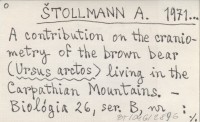 ŠTOLLMANN A. 1971...
A contribution on the cranio-
metry of the brown bear
(Ursus arctos) living in the
Carpathian Mountains. -
Biológia 26, ser. B, nr :